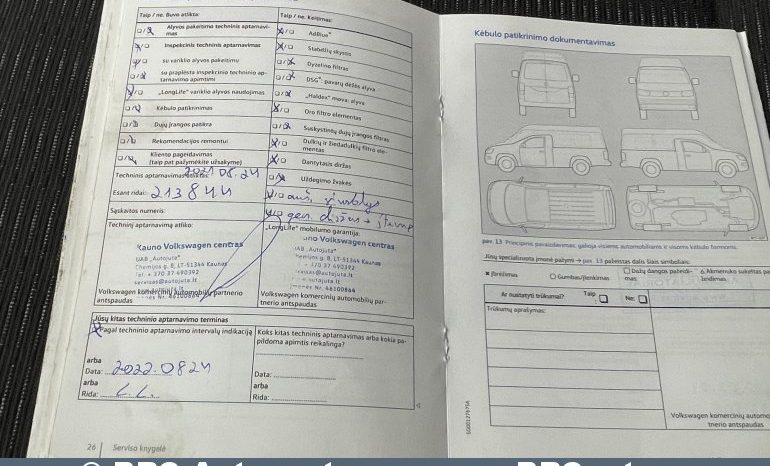 Taip / ne. Buvo atlikta:
Alyvos pakeitimo techninis aptarnavi-
mas
Inspekcinis techninis aptarnavimas
su variklio alyvos pakeitimu
su praplėsta inspekcinio techninio ap-
tarnavimo apimtimi
„LongLife" variklio alyvos naudojimas
Kėbulo patikrinimas
Dujų įrangos patikra
Rekomendacijos remontui
Kliento pageidavimas
(taip pat pažymėkite užsakyme)
Techninis aptarnavimas atliktas: 2021 08.24
Esant ridai: 213844
Sąskaitos numeris:
Techninį aptarnavimą atliko:
Kauno Volkswagen centras
UAB „Autojuta"
Chemijos g. 8, LT-51344 Kaunas
Tel. + 370 37 490392
servisas@autojuta.lt
Volkswagen komercinių automobilių partnerio
antspaudas
Taip / ne. Keitimas:
AdBlue®
Stabdžių skystis
Dyzelino filtras
DSG®, pavarų dėžės alyva
„Haldex" mova: alyva
Oro filtro elementas
Suskystintų dujų įrangos filtras
Dulkių ir žiedadulkių filtro ele-
mentas
Dantytasis diržas
Uždegimo žvakės
gen. diržas
„LongLife" mobilumo garantija:
uno Volkswagen centras
UAB „Autojuta"
hemijos g. 8, LT-51344 Kaunas
+ 370 37 490392
Volkswagen komercinių automobilių par-
tnerio antspaudas
Jūsų kitas techninio aptarnavimo terminas
Pagal techninio aptarnavimo intervalų indikaciją
arba
Data: 2022.0824
arba
Rida:
Koks kitas techninis aptarnavimas arba kokia pa-
pildoma apimtis reikalinga?
Data:
arba
Rida:
26 Serviso knygelė
Kėbulo patikrinimo dokumentavimas
pav. 13 Principinis pavaizdavimas: galioja visiems automobiliams ir visoms kėbulo formoms.
Jūsų specializuota įmonė pažymi → pav. 13 pažeistas dalis šiais simboliais:
Įbrėžimas
Gumbas/įlenkimas
Dažų dangos pažeidi-
mas
Akmenuko sukeltas pa-
žeidimas
Ar nustatyti trūkumai?
Taip
Ne:
Trūkumų aprašymas:
Volkswagen komercinių automo
tnerio antspaudas